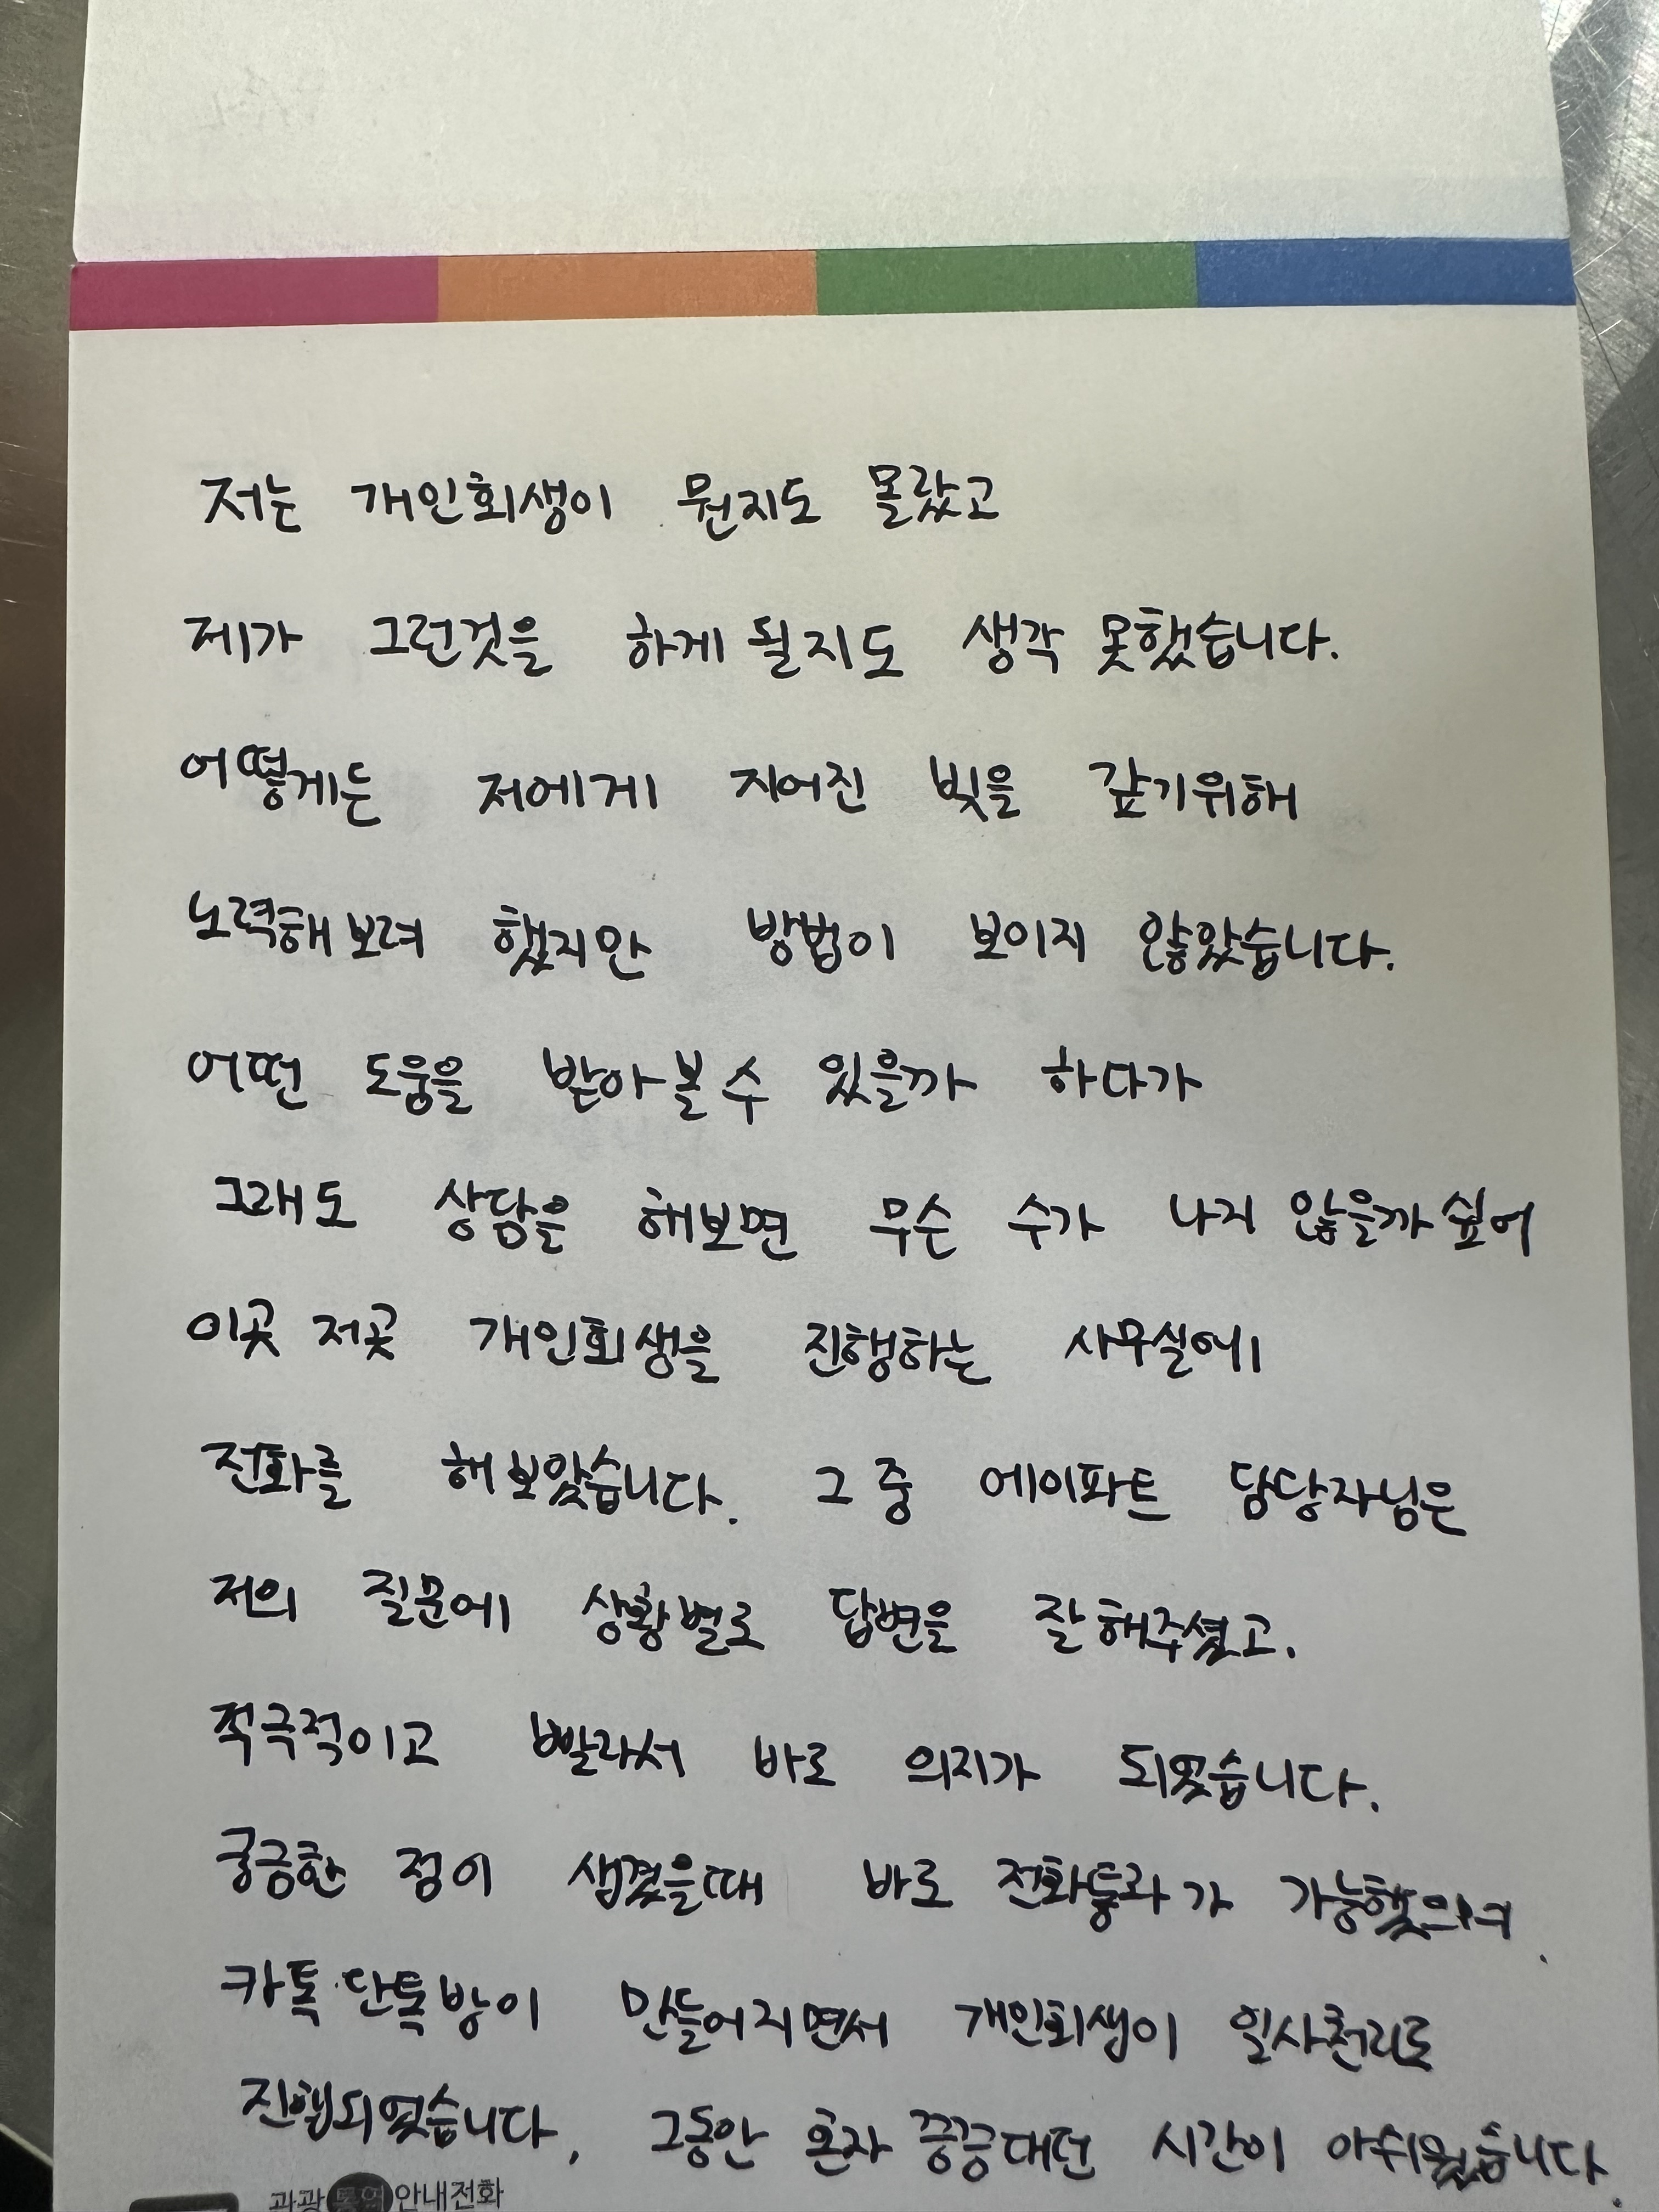 저는 개인회생이 뭔지도 몰랐고
제가 그런것을 하게 될지도 생각 못했습니다.
어떻게든 저에게 지어진 빚을 갚기위해
노력해 보려 했지만 방법이 보이지 않았습니다.
어떤 도움을 받아 볼 수 있을까 하다가
그래도 상담을 해보면 무슨 수가 나지 않을까 싶어
이곳 저곳 개인회생을 진행하는 사무실에
전화를 해보았습니다. 그 중 에이파트 담당자님은
저의 질문에 상황별로 답변을 잘 해주셨고.
적극적이고 빨라서 바로 의지가 되었습니다.
궁금한 점이 생겼을때 바로 전화통화가 가능했으며.
카톡 단톡방이 만들어지면서 개인회생이 일사천리로
진행되었습니다, 그동안 혼자 끙끙대던 시간이 아쉬웠습니다.
관광통역안내전화